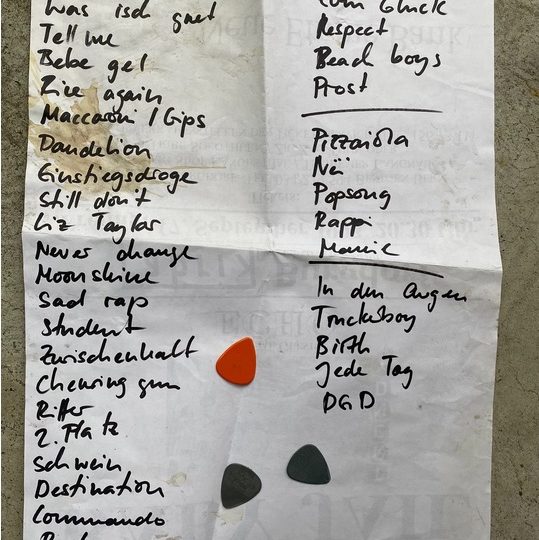 Was isch guet
Tell me
Bebe gel
Die again
Maccaroni / Gips
Dandelion
Einstiegsdroge
Still don't
Liz Taylor
Never change
Moonshine
Sad rap
Student
Zwischenhalt
Chewing gum
Ritter
2. Platz
Schwein
Destination
Commando
Zum Glück
Respect
Beach boys
Prost
Pizzaiola
Nü
Popsong
Rappi
Mamie
In den Augen
Truckboy
Birth
Jede Tag
DGD